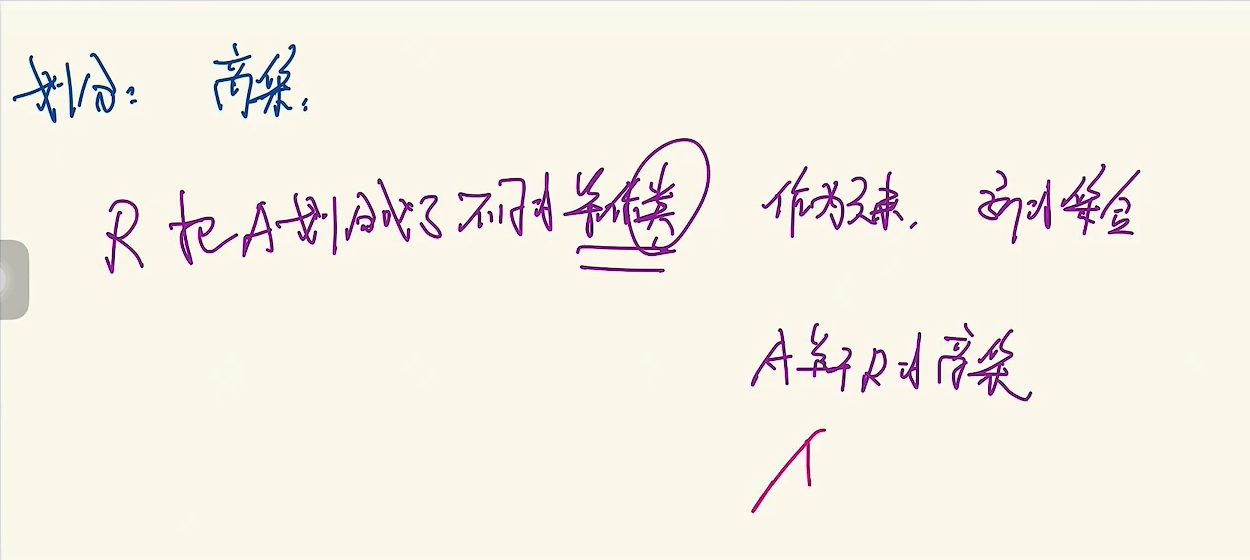 划分： 商集：
R 把 A 划分成了不同的等价类 作为元素， 产生的集合
A 关于 R 的商集